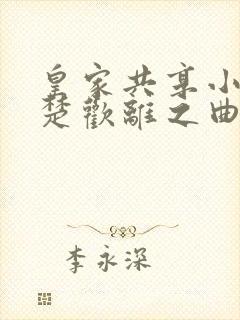 皇家共享小
楚歡離之曲
李永深